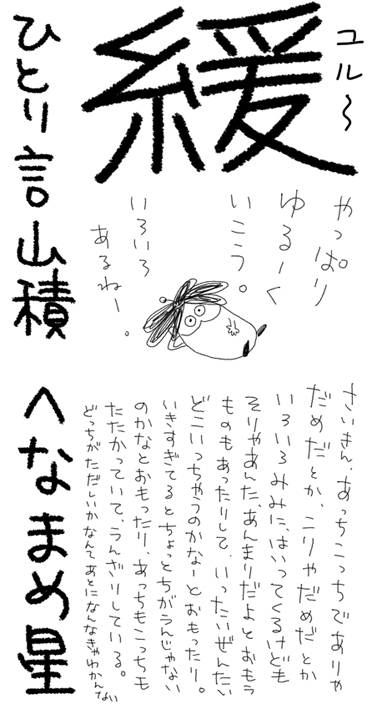 ユル〜
緩
ひとり言山積
へなまめ星
やっぱり
ゆるーく
いこう。
いろいろ
あるねー。
さいきん、あっちこっちでありゃ
だめだとか、こりゃだめだとか
いろいろみみに、はいってくるけども
そりゃあんた、あんまりだよとおもう
ものもあったりして、いったいぜんたい
どこいっちゃうのかなーとおもったり。
いきすぎてるとちょっとちがうんじゃない
のかなとおもったり、あっちもこっちも
たたかっていて、うんざりしている。
どっちがただしいかなんてあとになんなきゃわかんない